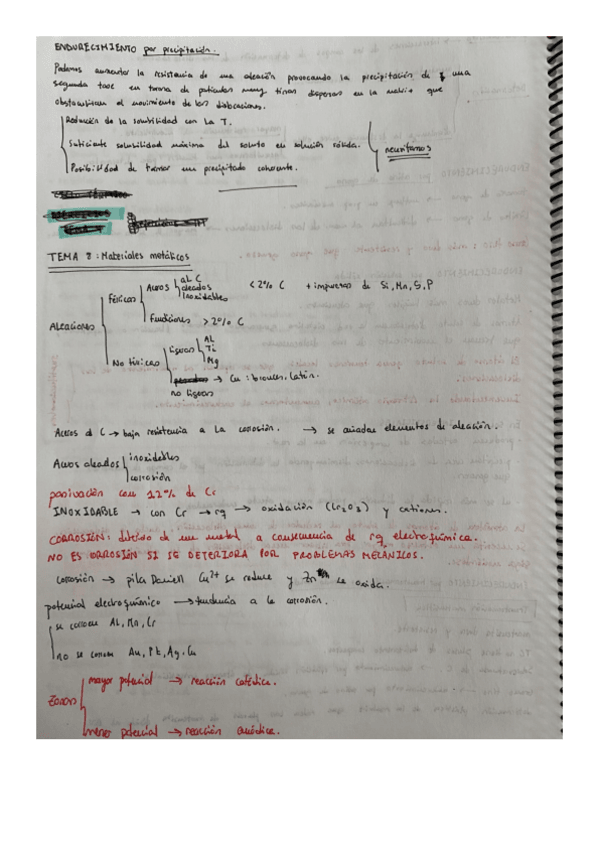 ENDURECIMIENTO por precipitación.
Podemos aumentar la resistencia de una aleación provocando la precipitación de una
segunda fase en forma de partículas muy finas dispersas en la matriz que
obstaculizan el movimiento de las dislocaciones.
Reducción de la solubilidad con la T.
Suficiente solubilidad máxima del soluto en solución sólida.
necesitamos
Posibilidad de formar un precipitado coherente.
TEMA 8: Materiales metálicos
Aleaciones
Férricas
Aceros
al C
aleados
inoxidables
<2% C + impurezas de Si, Mn, S, P
Fundiciones >2% C
No férricas
ligeras
AL
Ti
Mg
no ligeras
Cu: bronces, latón.
Aceros al C → baja resistencia a la corrosión. → se añaden elementos de aleación.
Aceros aleados
inoxidables
corrosión
pasivación con 12% de Cr
INOXIDABLE → con Cr → rq → oxidación (Cr2O3) y cationes.
CORROSIÓN: de un metal a consecuencia de rq electroquímica.
NO ES CORROSIÓN SI SE DETERIORA POR PROBLEMAS MECÁNICOS.
Corrosión → pila Daniell Cu2+ se reduce y Zn se oxida.
potencial electroquímico → tendencia a la corrosión.
se corroen AL, Mn, Cr
no se corroen Au, Pt, Ag, Cu
Zonas
mayor potencial → reacción catódica.
menor potencial → reacción anódica.